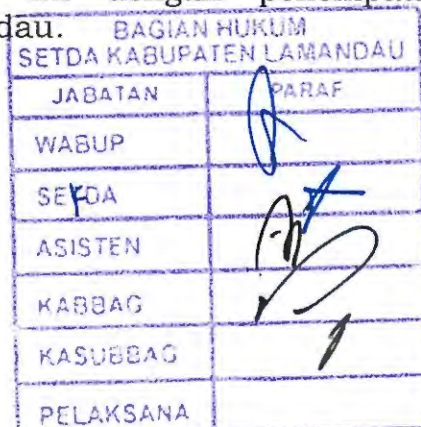 dengan
dau.
BAGIAN HUKUM
SETDA KABUPATEN LAMANDAU
JABATAN PARAF
WABUP
SEKDA
ASISTEN
KABBAG
KASUBBAG
PELAKSANA